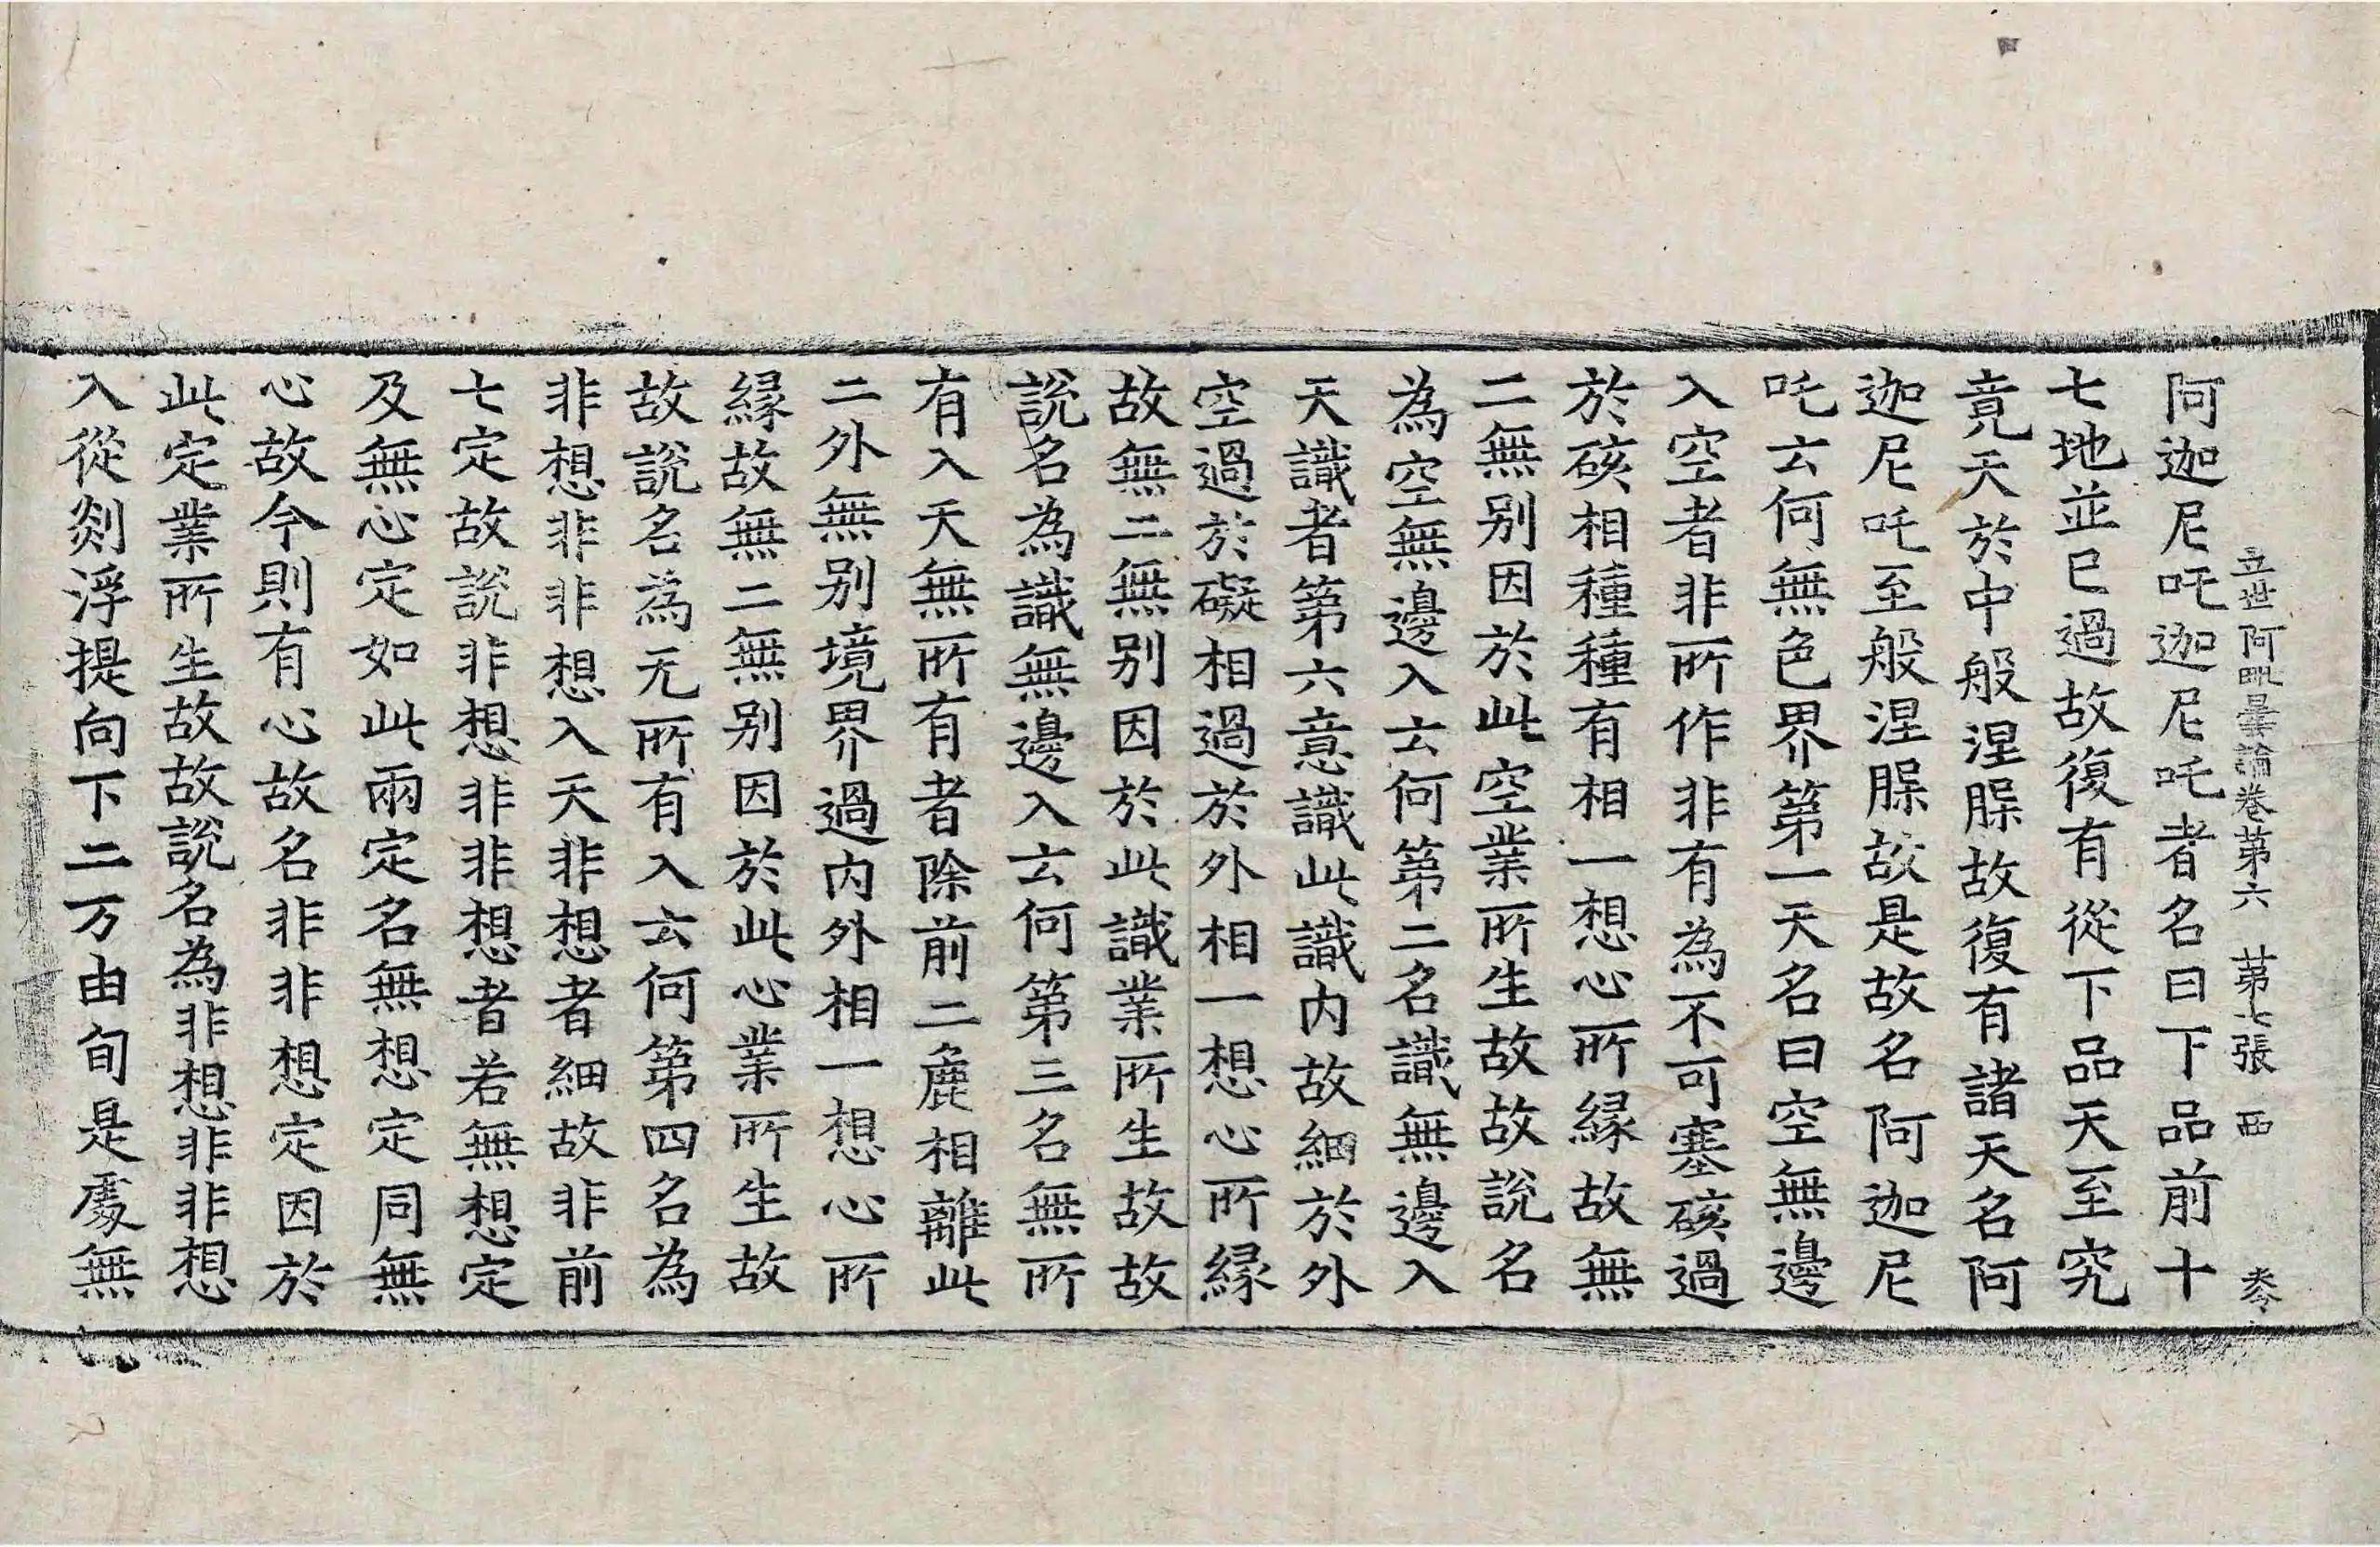 立世阿毗曇論卷第六 苐七張 西
阿迦尼吒迦尼吒者名曰下品前十
七地並已過故復有從下品天至究
竟天於中般涅脲故復有諸天名阿
迦尼吒至般涅脲故是故名阿迦尼
吒云何無色界第一天名曰空無邊
入空者非所作非有為不可塞硋過
於硋相種種有相一想心所緣故無
二無別因於此空業所生故故說名
為空無邊入云何第二名識無邊入
天識者第六意識此識内故細於外
空過於礙相過於外相一想心所緣
故無二無別因於此識業所生故故
說名為識無邊入云何第三名無所
有入天無所有者除前二麁相離此
二外無別境界過内外相一想心所
緣故無二無別因於此心業所生故
故說名為无所有入云何第四名為
非想非非想入天非想者細故非前
七定故說非想非非想者若無想定
及無心定如此兩定名無想定同無
心故今則有心故名非非想定因於
此定業所生故故說名為非想非非想
入從剡浮提向下二万由旬是處無